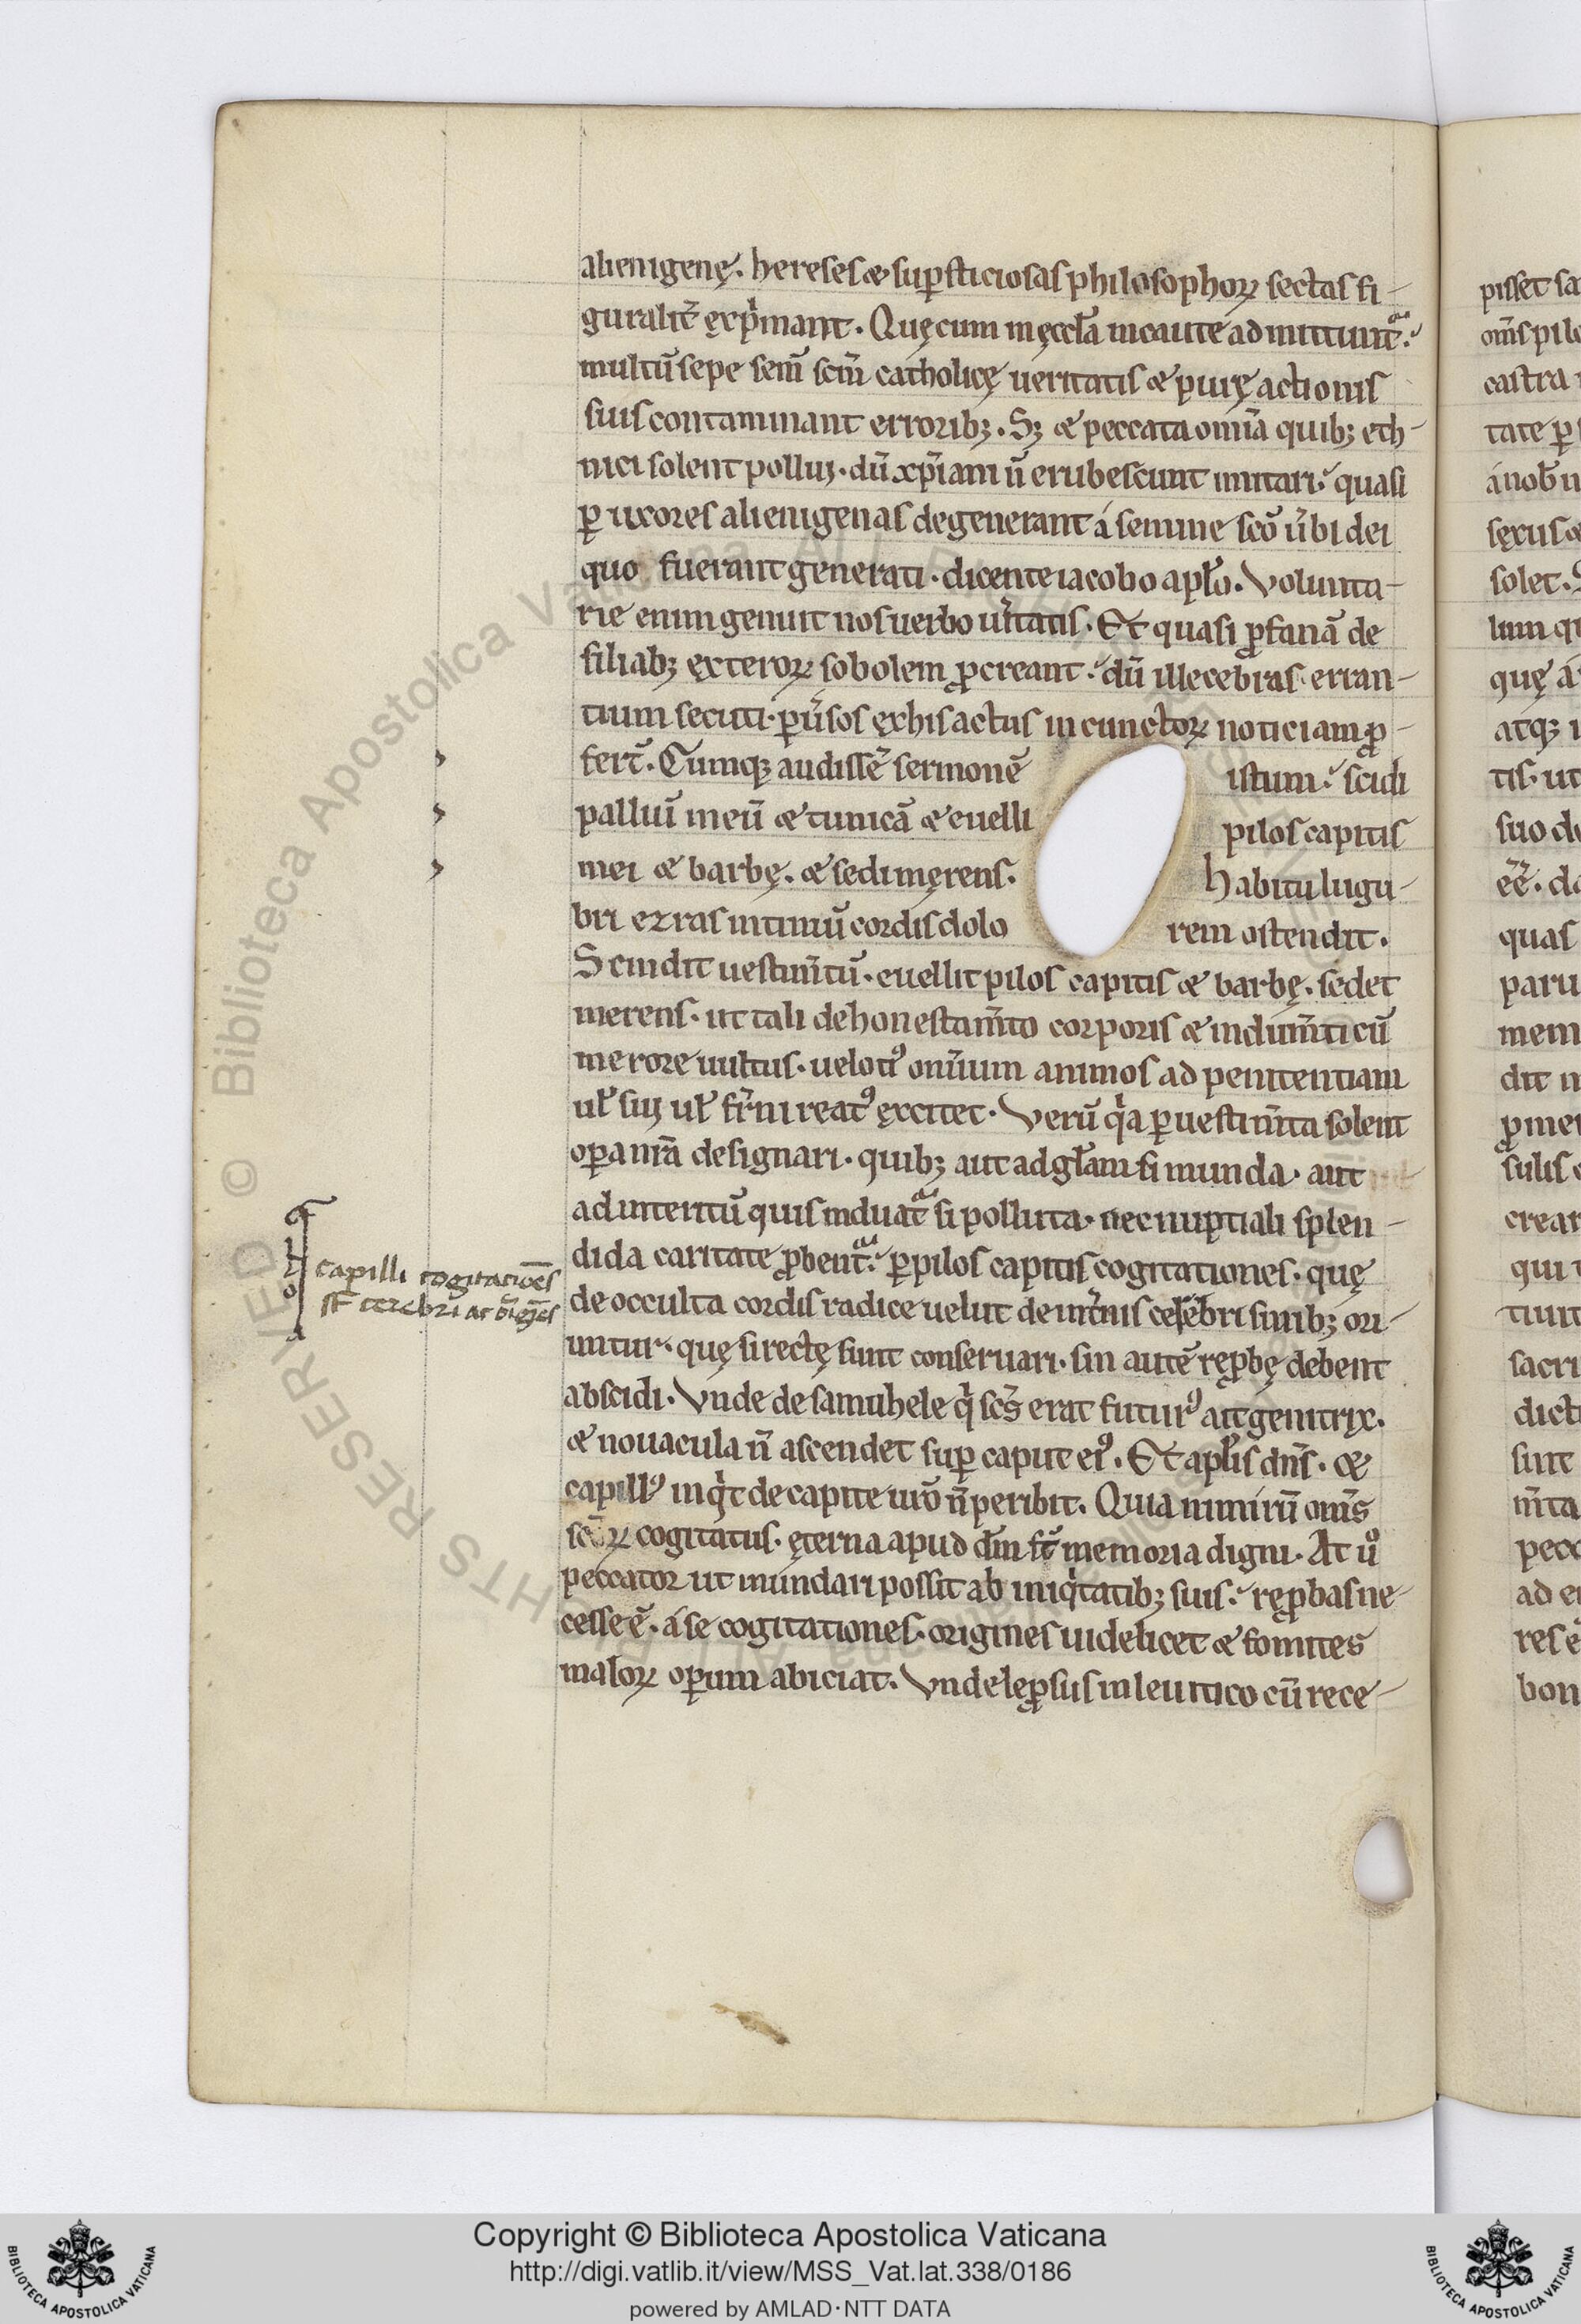 alienigenę. hereses & suꝑsticiosas philosophoꝝ sectas fi-
guralit̄ exp̓mant. Quę cum in ęccl̄a incaute admittunt̄.
multū sepe sem̄ sc̄m catholicę ueritatis & purę actionis
suis contaminant errorib;. S; & peccata om̄ia quib; eth-
nici solent pollui. dū xp̄iani n̄ erubescunt imitari. quasi
ꝑ uxores alienigenas degenerant á semine sc̄o u̓bi dei
quo fuerant generati. dicente iacobo apl̄o. Volunta-
rie enim genuit nos uerbo ur̄itatis. Et quasi ꝓfanā de
filiab; ęxteroꝝ sobolem ꝓcreant. dū illecebras erran-
tium secuti. ꝑu̓sos ęx his actus in cunctoꝝ noticiam ꝓ-
fert̄. Cumq; audissē sermonē istum. scidi
palliū meū & tunicā & euelli pilos capitis
mei & barbę. & sedi męrens. habitu lugu-
bri ezras intimū cordis dolorem ostendit.
Scindit uestim̄tū. euellit pilos capitis & barbę. sedet
merens. ut tali dehonestam̄to corporis & indum̄ti cū
merore uultus. uelotiꝰ om̄ium animos ad penitentiam
ul̄ sui ul̄ fr̄ni reatꝰ ęxcitet. Verū q̓a ꝑ uestim̄ta solent
oꝑa nr̄a designari. quib; aut ad gl̄am si munda. aut
ad interitū quis induat̄ si polluta. nec nuptiali splen-
dida caritate ꝓbent̄. ꝑ pilos capitis cogitationes. quę
de occulta cordis radice uelut de int̓nis celebri sinib; ori-
untur. quę si rectę sunt conseruari. sin autē reꝓbę debent
abscidi. Vnde de samuhele q̓ sc̄s erat futurꝰ ait genitrix.
& nouacula n̄ ascendet suꝑ caput eiꝰ. Et apl̄is dn̄s. &
capillꝰ inq̓t de capite ur̄o n̄ peribit. Quia nimirū om̄s
sc̄oꝝ cogitatus. ęterna apud dm̄ st̄ memoria digni. At u̓o
peccator ut mundari possit ab iniq̓tatib; suis. reꝓbas ne-
cesse ē. á se cogitationes. origines uidelicet & fomites
maloꝝ oꝑum abiciat. Vnde leꝓsus in leuitico cū rece-
capilli cogitatiōes
Copyright © Biblioteca Apostolica Vaticana
http://digi.vatlib.it/view/MSS_Vat.lat.338/0186
powered by AMLAD·NTT DATA